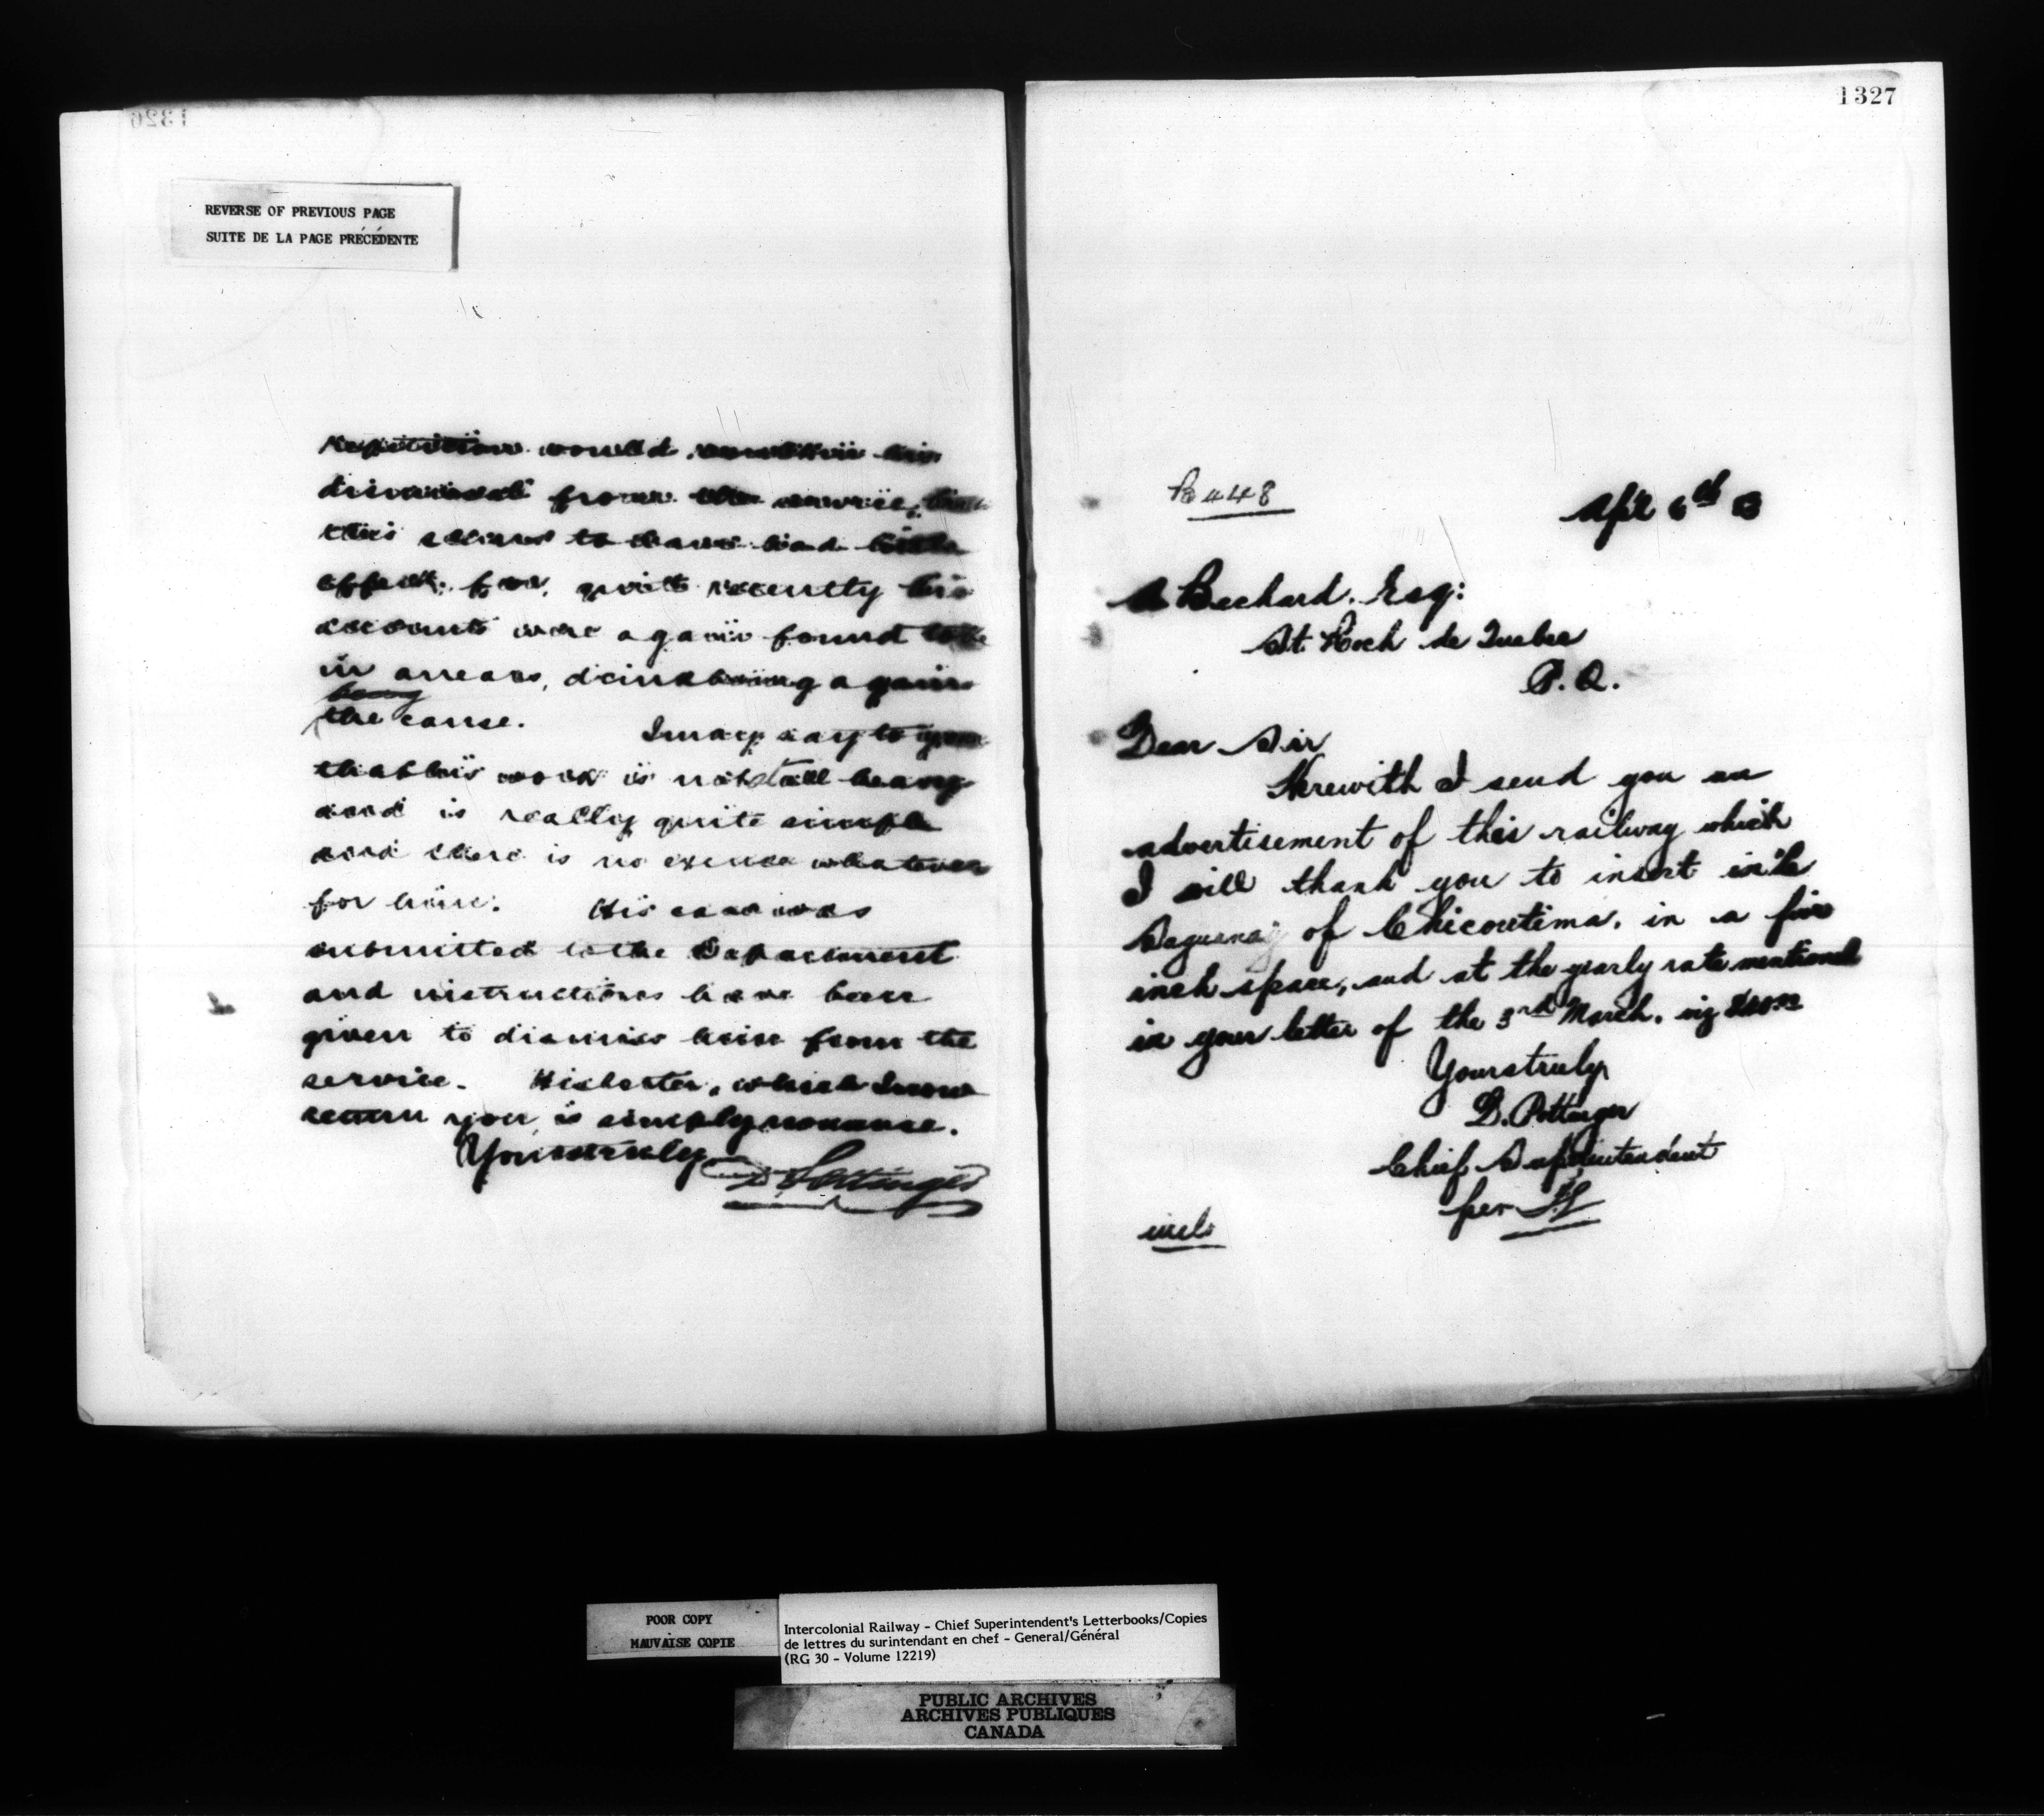 1326
REVERSE OF PREVIOUS PAGE
SUITE DE LA PAGE PRÉCÉDENTE
repetition would his
dismissal from the service, but
this seems to have had little
effect, for, quite recently his
accounts were again found to be
in arrears, drinking again
being
the cause. I may say to you
that his work is not at all heavy
and is really quite simple
and there is no excuse whatever
for him. His case was
submitted to the Department
and instructions have been
given to dismiss him from the
service. His letter, which I now
return you, is simply nonsense.
Yours truly
D Pottinger
1327
448
Apl 6th 83
A Bechard. Esq:
St. Roch de Quebec
P. Q.
Dear Sir
Herewith I send you an
advertisement of this railway which
I will thank you to insert in the
Saguenay of Chicoutima, in a five
inch space, and at the yearly rate mentioned
in your letter of the 3rd March. viz
Yours truly
D. Pottinger
Chief Superintendent
per
incl.
POOR COPY
MAUVAISE COPIE
Intercolonial Railway - Chief Superintendent's Letterbooks/Copies
de lettres du surintendant en chef - General/Général
(RG 30 - Volume 12219)
PUBLIC ARCHIVES
ARCHIVES PUBLIQUES
CANADA